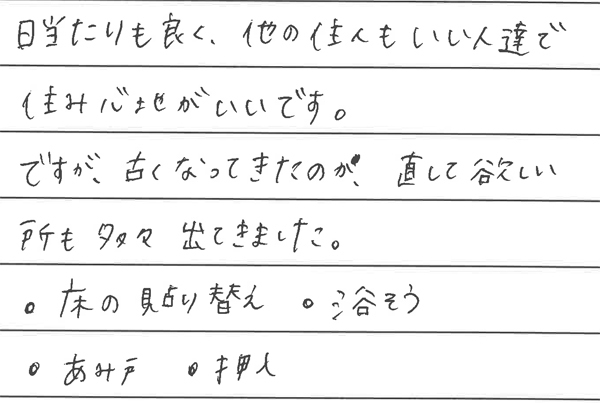 日当たりも良く、他の住人もいい人達で
住み心地がいいです。
ですが、古くなってきたのか、直して欲しい
所も多々出てきました。
• 床の貼り替え • 浴そう
• あみ戸 • 押入